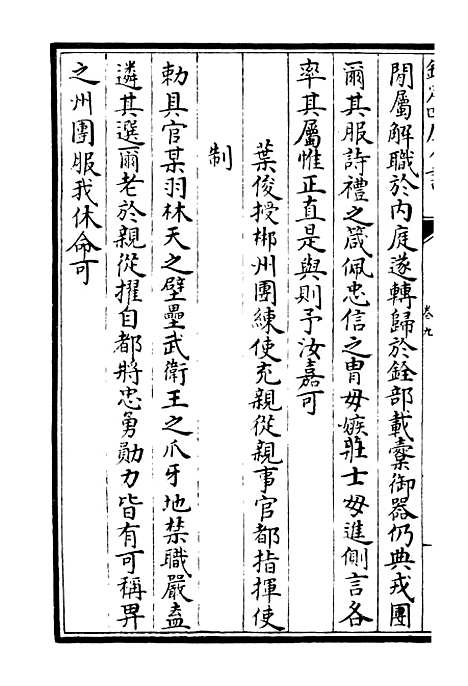 間屬解職於内庭遂轉歸於銓部載櫜御器仍典戎團
爾其服詩禮之箴佩忠信之胄毋嫉莊士毋進側言各
率其屬惟正直是與則予汝嘉可
葉俊授郴州團練使充親從親事官都指揮使
制
勅具官某羽林天之壁壘武衛王之爪牙地禁職嚴盍
遴其選爾老於親從擢自都將忠勇勛力皆有可稱畀
之州團服我休命可
卷九